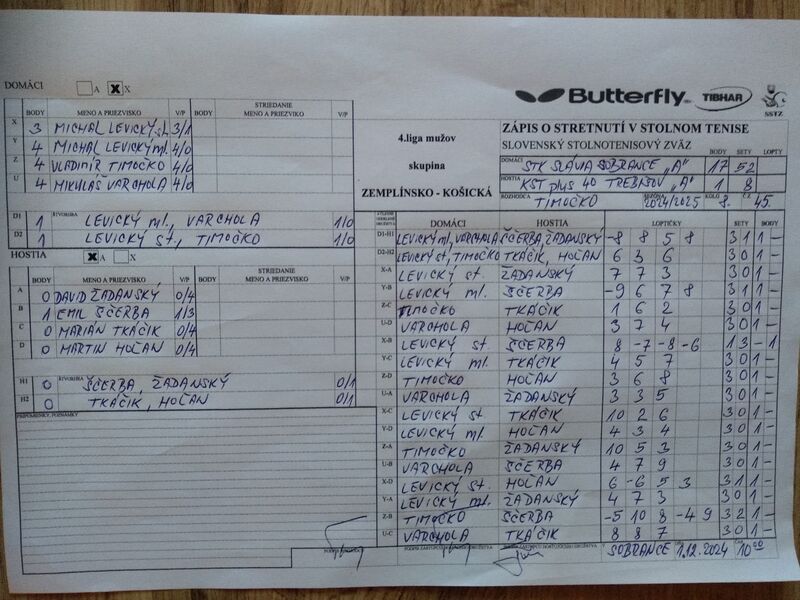 DOMÁCI A X X
Butterfly TIBHAR SSTZ
BODY MENO A PRIEZVISKO V/P BODY STRIEDANIE MENO A PRIEZVIKO V/P
X 3 MICHAL LEVICKÝ st. 3/1
Y 4 MICHAL LEVICKÝ ml. 4/0
Z 4 VLADIMÍR TIMOČKO 4/0
U 4 MIKULÁŠ VARCHOLA 4/0
D1 1 ŠTVORHRA LEVICKÝ ml., VARCHOLA 1/0
D2 1 LEVICKÝ st., TIMOČKO 1/0
HOSTIA X A X
BODY MENO A PRIEZVISKO V/P BODY STRIEDANIE MENO A PRIEZVISKO V/P
A 0 DAVID ŽADANSKÝ 0/4
B 1 EMIL ŠČERBA 1/3
C 0 MARIÁN TKÁČIK 0/4
D 0 MARTIN HOĽAN 0/4
H1 0 ŠTVORHRA ŠČERBA, ŽADANSKÝ 0/1
H2 0 TKÁČIK, HOĽAN 0/1
PRIPOMIENKY, POZNÁMKY
4.liga mužov
skupina
ZEMPLÍNSKO - KOŠICKÁ
ZÁPIS O STRETNUTÍ V STOLNOM TENISE
SLOVENSKÝ STOLNOTENISOVÝ ZVÄZ BODY SETY LOPTY
DOMÁCI STK SLÁVIA SOBRANCE "A" 17 52
HOSTIA KST plus 40 TREBIŠOV "A" 1 8
ROZHODCA TIMOČKO SEZÓNA 2024/2025 KOLO 8. Č.Z. 45.
DOMÁCI HOSTIA LOPTIČKY SETY BODY
D1-H1 LEVICKÝ ml, VARCHOLA ŠČERBA, ŽADANSKÝ -8 8 5 8 3 1 1 -
D2-H2 LEVICKÝ st, TIMOČKO TKÁČIK, HOĽAN 6 3 6 3 0 1 -
X-A LEVICKÝ st. ŽADANSKÝ 7 7 3 3 0 1 -
Y-B LEVICKÝ ml. ŠČERBA -9 6 7 8 3 1 1 -
Z-C TIMOČKO TKÁČIK 1 6 2 3 0 1 -
U-D VARCHOLA HOĽAN 3 7 4 3 0 1 -
X-B LEVICKÝ st ŠČERBA 8 -7 -8 -6 1 3 - 1
Y-C LEVICKÝ ml. TKÁČIK 4 5 7 3 0 1 -
Z-D TIMOČKO HOĽAN 3 6 8 3 0 1 -
U-A VARCHOLA ŽADANSKÝ 3 3 5 3 0 1 -
X-C LEVICKÝ st TKÁČIK 10 2 6 3 0 1 -
Y-D LEVICKÝ ml. HOĽAN 4 3 4 3 0 1 -
Z-A TIMOČKO ŽADANSKÝ 10 5 3 3 0 1 -
U-B VARCHOLA ŠČERBA 4 7 9 3 0 1 -
X-D LEVICKÝ st. HOĽAN 6 -6 5 3 3 1 1 -
Y-A LEVICKÝ ml. ŽADANSKÝ 4 7 3 3 0 1 -
Z-B TIMOČKO ŠČERBA -5 10 8 -4 9 3 2 1 -
U-C VARCHOLA TKÁČIK 8 8 7 3 0 1 -
SOBRANCE 1.12.2024 10 00